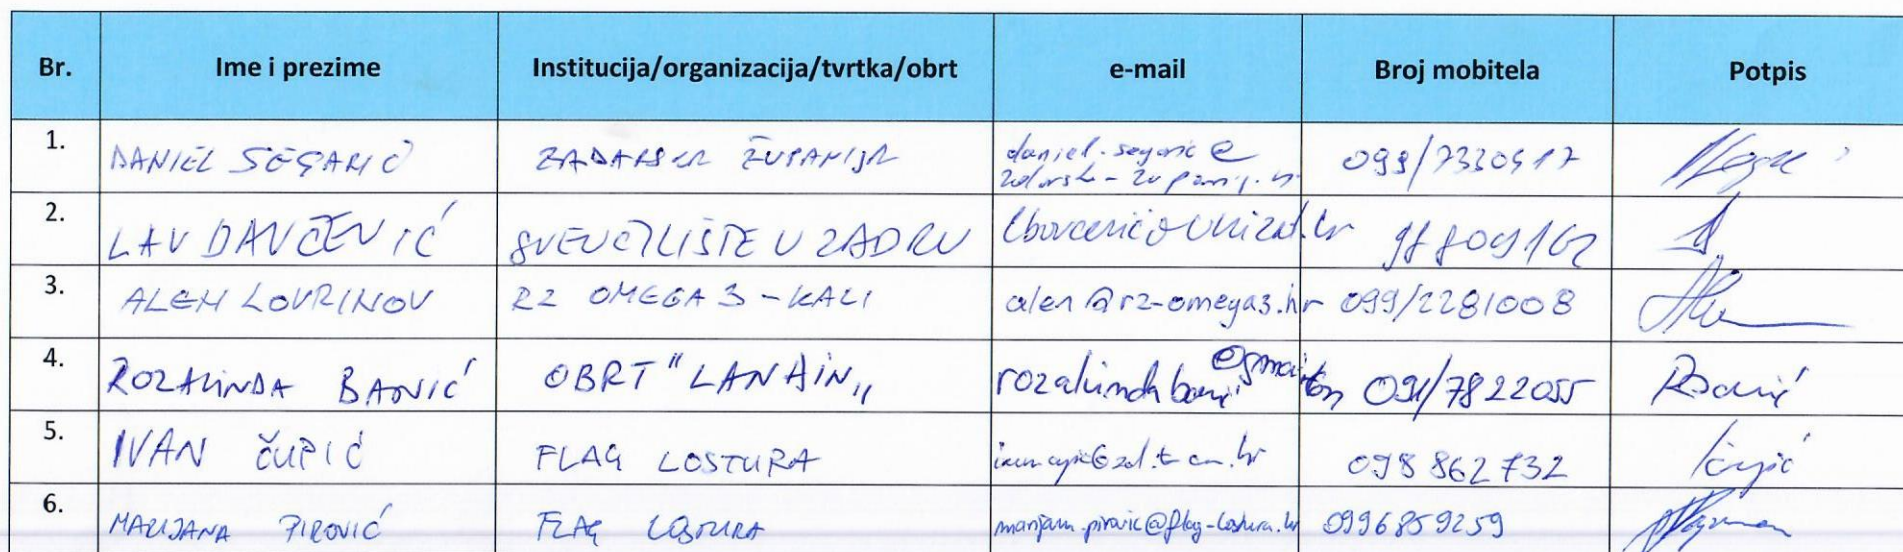 Br. Ime i prezime Institucija/organizacija/tvrtka/obrt e-mail Broj mobitela Potpis
1. DANIEL SEGARIĆ ZADARSKA ŽUPANIJA daniel.segaric@ 099/7330417
zadarska-zupanija.hr
2. LAV BAVČEVIĆ SVEUČILIŠTE U ZADRU lbavcevic@unizd.hr 98 809162
3. ALEN LOVRINOV RZ OMEGA 3 - KALI alen@rz-omega3.hr 099/2281008
4. ROZALINDA BANIĆ OBRT "LANAIN„ rozalindabanic@gmail.com 091/7822055 Banić
5. IVAN ČUPIĆ FLAG LOSTURA ivan.cupic@zd.t-com.hr 098 862 732 Čupić
6. MARIJANA PIROVIĆ FLAG LOSTURA marijana.pirovic@flag-lostura.hr 0996859259